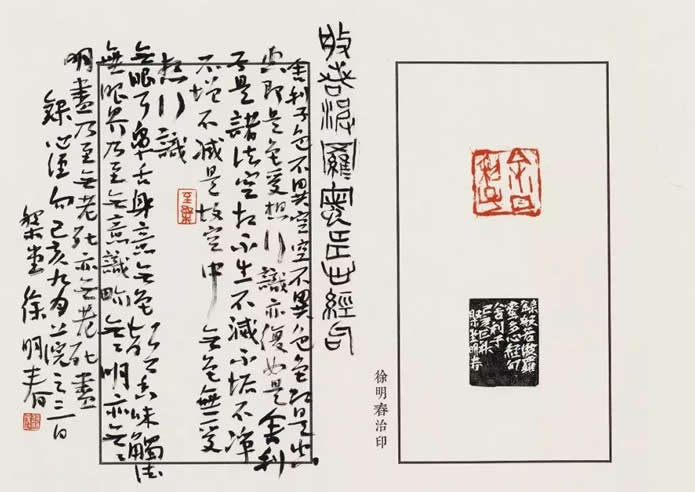 舍利子
錄般若波羅
蜜多心經句
舍利子
徐明春治印
般若波羅蜜多心經句
舍利子色不異空空不異色色即是空
空即是色受想行識亦復如是舍利
子是諸法空相不生不滅不垢不淨
不增不減是故空中無色無受
想行識
無眼耳鼻舌身意無色聲香味觸法
無眼界乃至無意識界無無明亦無無
明盡乃至無老死亦無老死盡
錄心經句己亥九月上浣之三日
棃堂徐明春